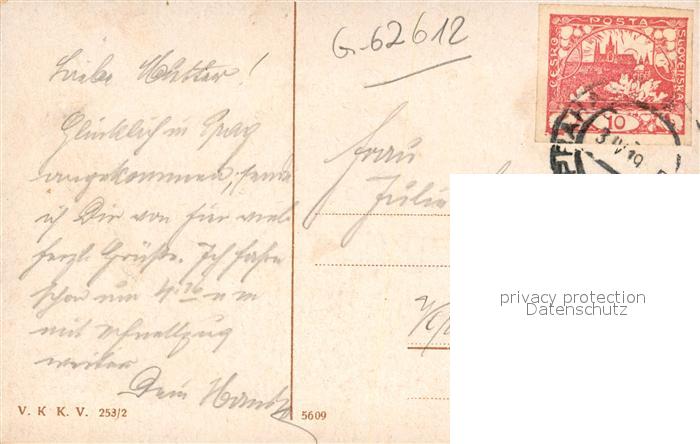 G-62612
POSTA
ČESKO
SLOVENSKÁ
10
PRAHA
3 IV 19
Liebe Mutter!
Glücklich in Prag
angekommen, sende
ich Dir von hier viele
herzl. Grüße. Ich fahre
schon um 4 16
mit Schnellzug
weiter
Dein
Frau
Julie
privacy protection
Datenschutz
V. K K. V. 253/2
5609